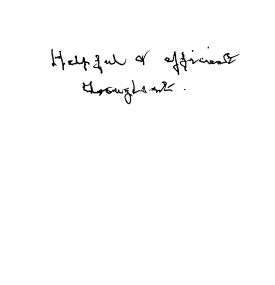 Helpful & efficient
throughout.